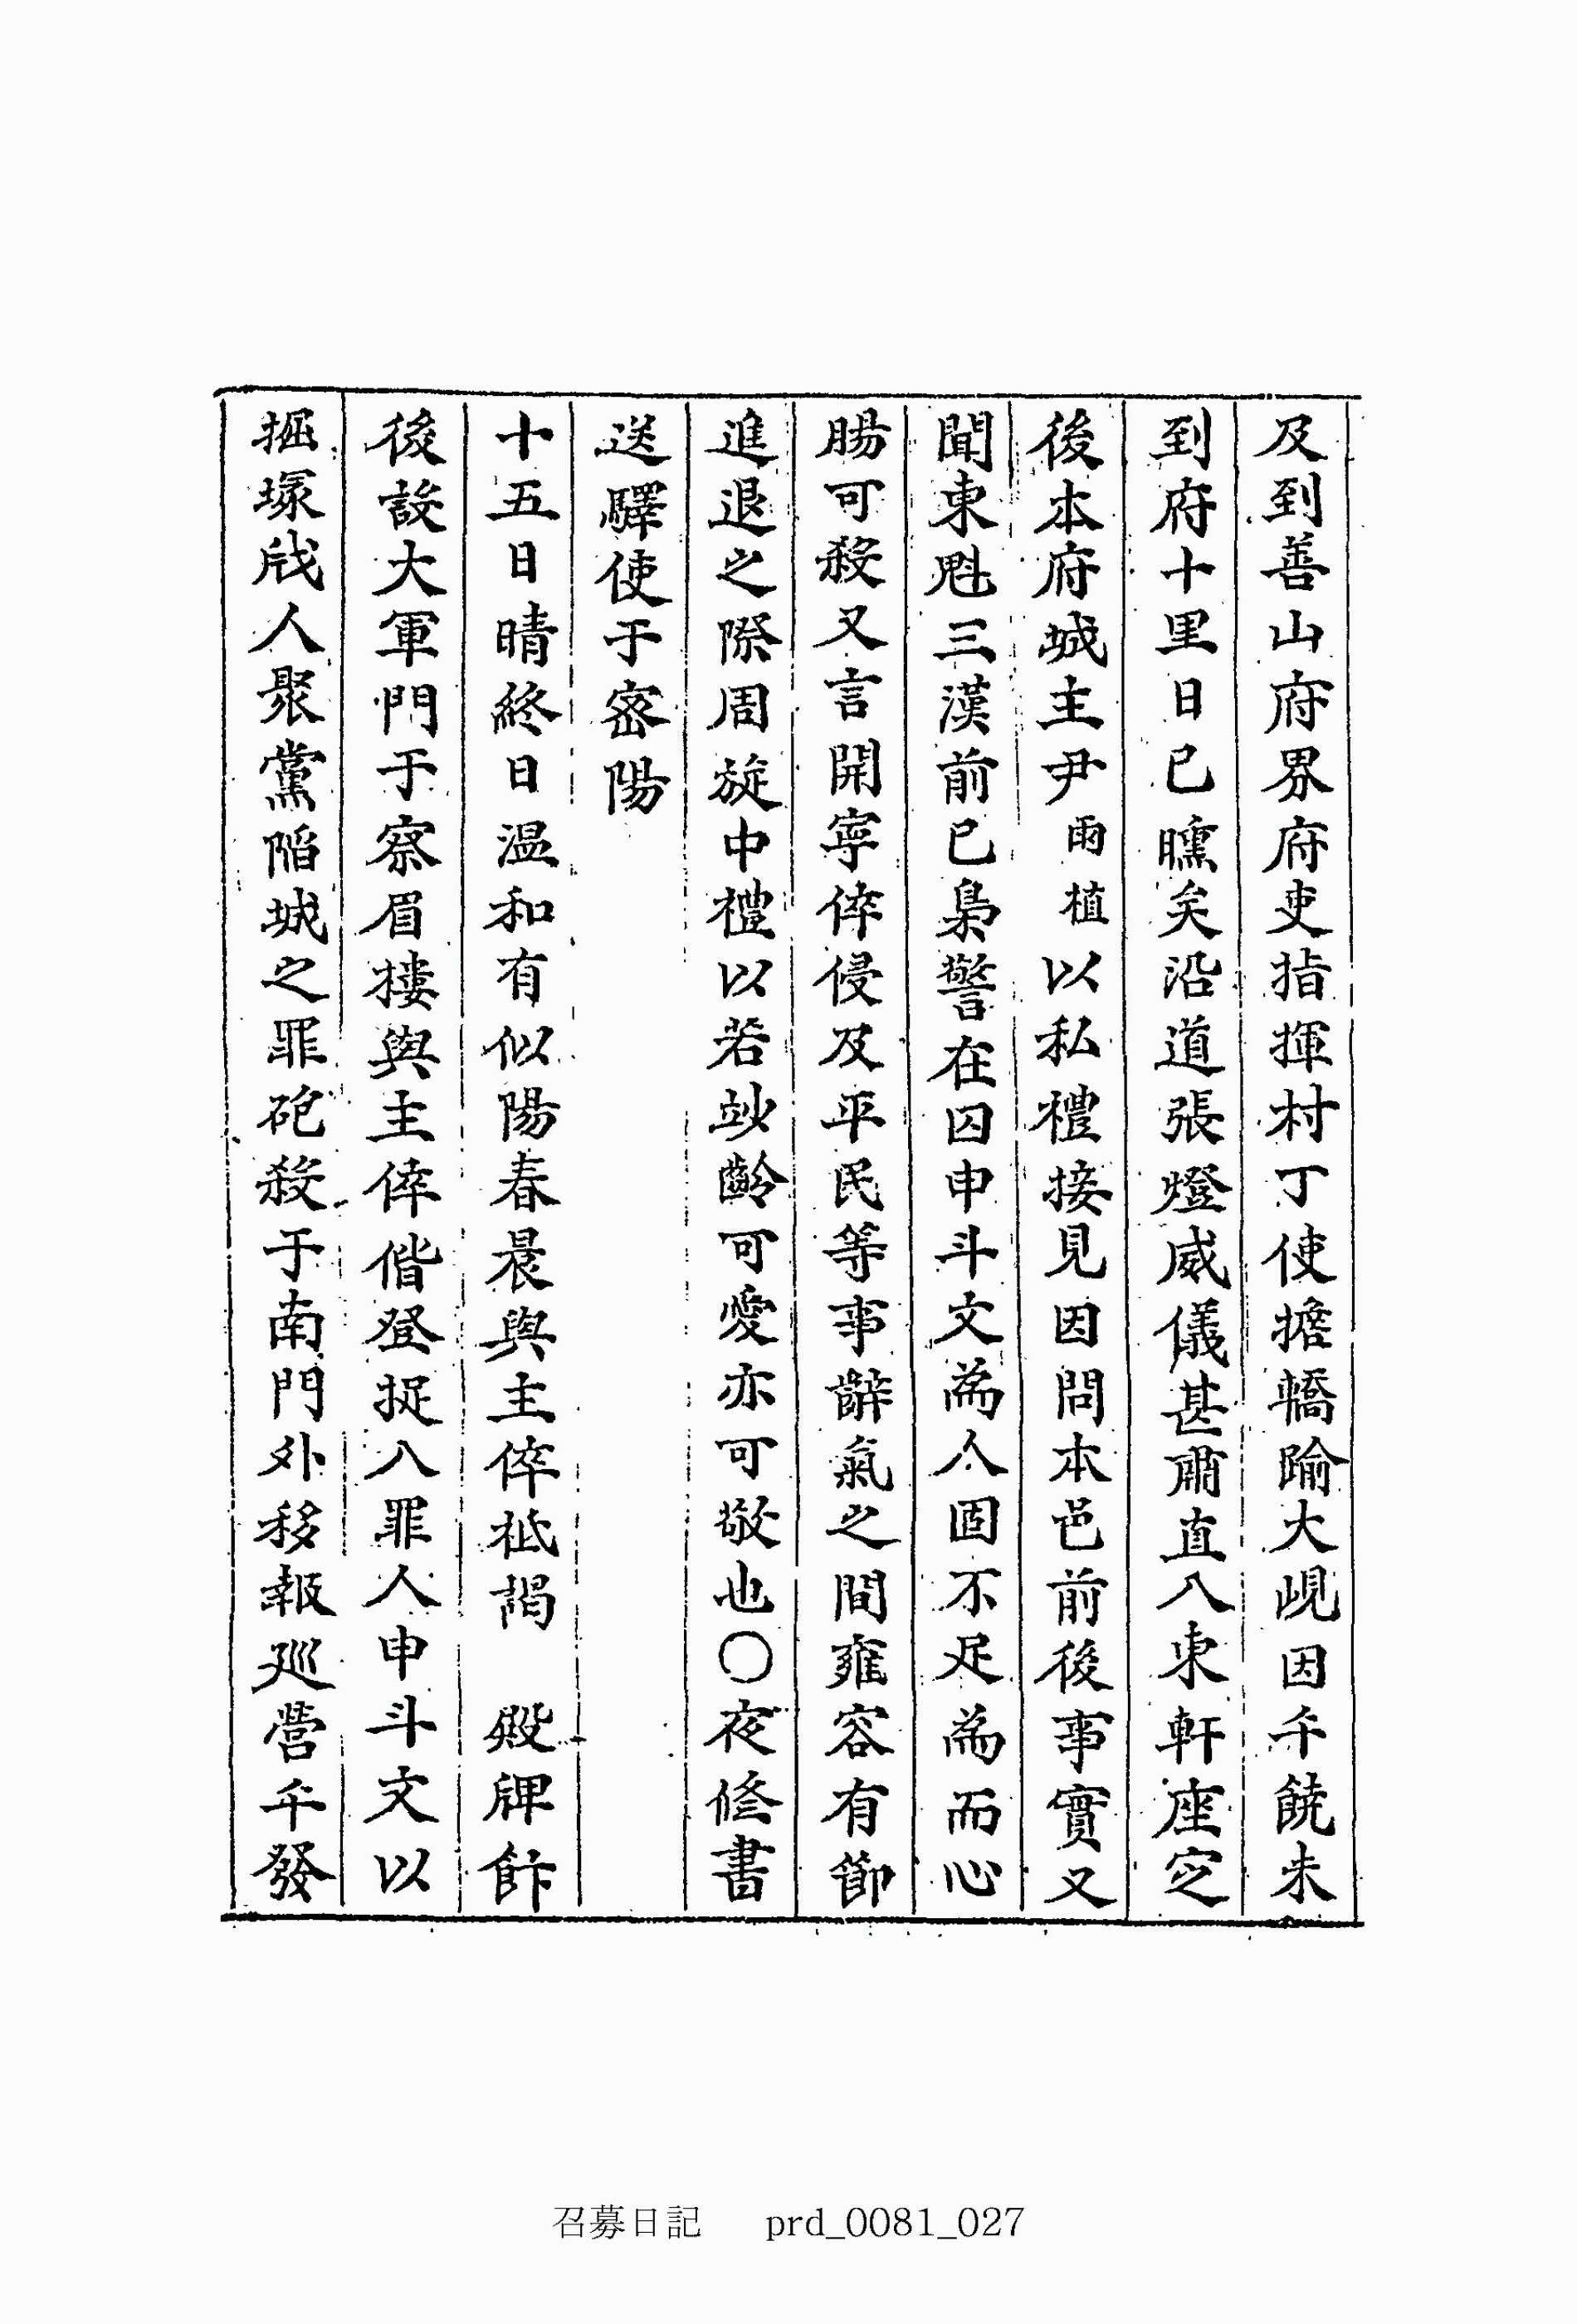 及到善山府界府吏指揮村丁使擔轎踰大峴因午饒未
到府十里日已曛矣沿道張燈威儀甚肅直入東軒座定
後本府城主尹雨植以私禮接見因問本邑前後事實又
聞東魁三漢前已梟警在囚申斗文爲人固不足爲而心
腸可殺又言開寧倅侵及平民等事辭氣之間雍容有節
進退之際周旋中禮以若妙齡可愛亦可敬也〇夜修書
送驛使于密陽
十五日晴終日温和有似陽春晨與主倅祗謁 殿牌飭
後設大軍門于察眉樓與主倅偕登捉入罪人申斗文以
掘塚戕人聚黨陷城之罪砲殺于南門外移報巡營午發
召募日記 prd_0081_027